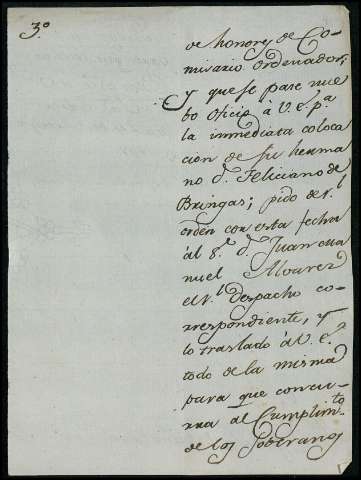 3.º
de honores de Co-
misario Ordenador;
y que se pase nue
bo oficio à V.E. p.ª
la inmediata coloca
cion de su herma
no d.ⁿ Feliciano de
Bringas; pido de r.l
orden con esta fecha
àl S.r d.ⁿ Juan Ma
nuel Alvarez
el r.l Despacho co-
rrespondiente, y
lo traslado à V.E.
todo de la misma
para que concu-
rra al Cumplim.to
de los Soberanos